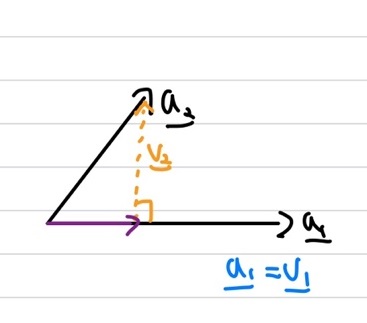 a₂
v₂
a₁
a₁ = v₁